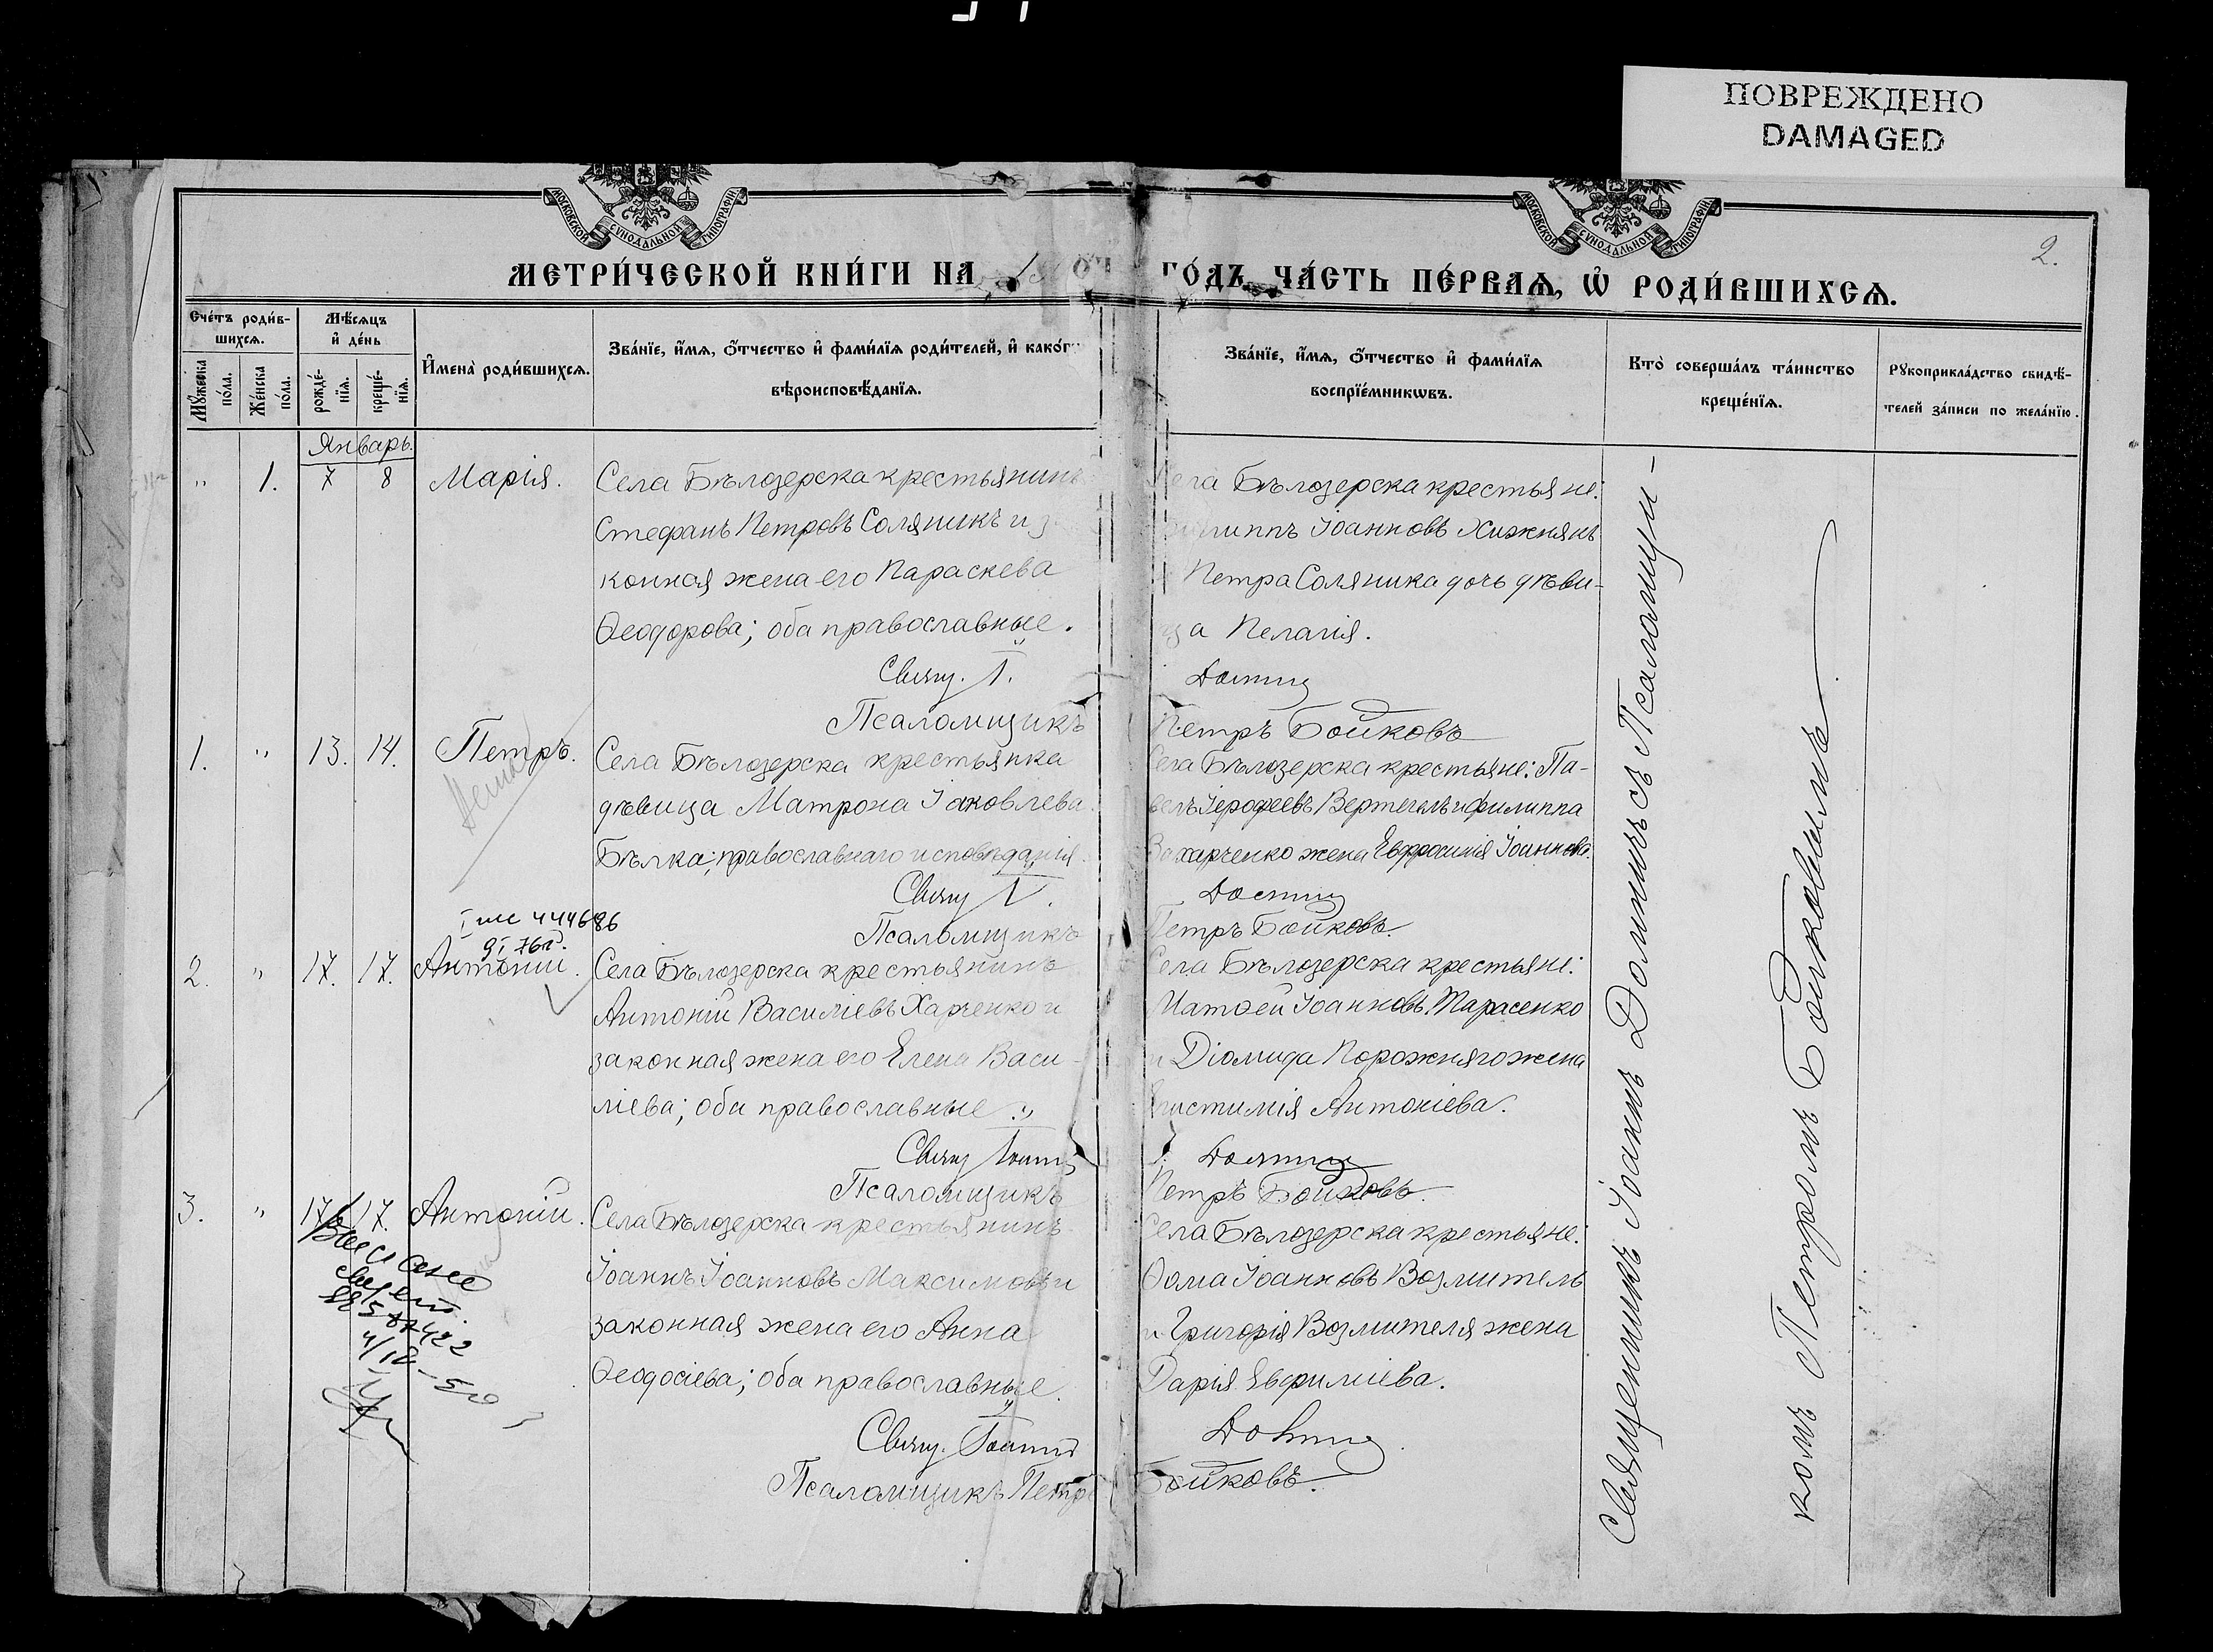 ПОВРЕЖДЕНО
DAMAGED
МОСКОВСКОЙ СѴНОДАЛЬНОЙ ТИПОГРАФІИ
МОСКОВСКОЙ СѴНОДАЛЬНОЙ ТИПОГРАФІИ
2.
МЕТРИ́ЧЕСКОЙ КНИ́ГИ НА
ГО́ДЪ, ЧА́СТЬ ПЕ́РВАѦ, Ѡ҆ РОДИ́ВШИХСѦ.
Сче́тъ роди́в-
шихсѧ.
Мѣ́сѧцъ
и҆ де́нь
Мꙋ́жеска
по́ла.
Же́нска
по́ла.
рожде́-
нїѧ.
креще́-
нїѧ.
И҆мена̀ роди́вшихсѧ.
Зва́нїе, и҆́мѧ, ѻ҆́тчество и҆ фами́лїѧ роди́телей, и҆ како́г
вѣроисповѣ́данїѧ.
Зва́нїе, и҆́мѧ, ѻ҆́тчество и҆ фами́лїѧ
воспрїе́мникѡвъ.
Кто̀ соверша́лъ та́инство
креще́нїѧ.
Рꙋкоприкла́дство свидѣ́-
телей за́писи по жела́нїю.
Январь.
" 1. 7 8 Марія.
Села Бѣлозерска крестьянинъ
Стефанъ Петровъ Соляникъ и за
конная жена его Параскева
Ѳеодорова; оба православные.
Свящ. І.
Псаломщикъ
Села Бѣлозерска крестьяне:
Филиппъ Іоанновъ Хижнякъ
Петра Соляника дочь дѣви-
ца Пелагія.
Долинц
Петръ Бойковъ
1. " 13. 14. Петръ.
Села Бѣлозерска крестьянка
дѣвица Матрона Іаковлева
Бѣлка; православнаго исповѣданія.
Свящ І.
Псаломщикъ
Села Бѣлозерска крестьяне: Па-
велъ Іерофеевъ Вертегелъ и Филиппа
Захарченко жена Евфросинія Іоаннова.
Долинц
Петръ Бойковъ.
444686
2. " 17. 17. Антоній.
Села Бѣлозерска крестьянинъ
Антоній Василіевъ Харченко и
законная жена его Елена Васи-
ліева; оба православные.
Свящ Іоаннъ
Псаломщикъ
Села Бѣлозерска крестьяне:
Матѳей Іоанновъ Тарасенко
и Діомида Порожняго жена
Епистимія Антоніева.
Долинц
Петръ Бойковъ.
3. " 17 17. Антоній.
Села Бѣлозерска крестьянинъ
Іоаннъ Іоанновъ Максимовъ и
законная жена его Анна
Ѳеодосіева; оба православные.
Свящ. Іоаннъ
Псаломщикъ Петръ
Села Бѣлозерска крестьяне:
Ѳома Іоанновъ Возмитель
и Григорія Возмителя жена
Дарія Евфиміева.
Долинц
Бойковъ.
Священникъ Іоаннъ Долинцъ съ Псаломщи-
комъ Петромъ Бойковымъ